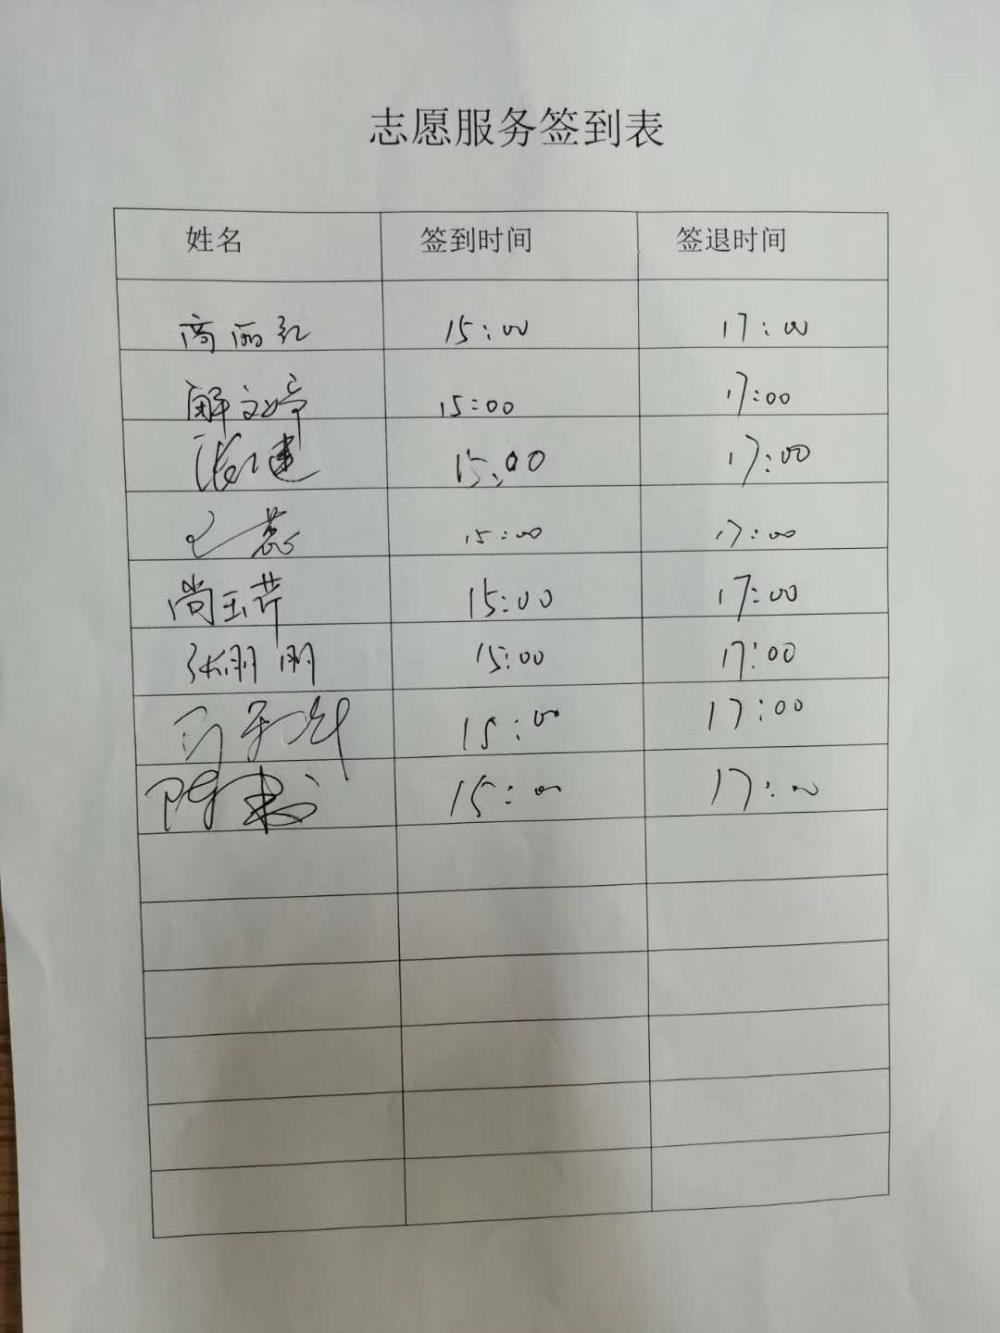 志愿服务签到表
姓名 签到时间 签退时间
商丽红 15:00 17:00
解文婷 15:00 17:00
张建 15:00 17:00
王蕊 15:00 17:00
尚玉芹 15:00 17:00
张朋朋 15:00 17:00
15:00 17:00
陈 15:00 17:00